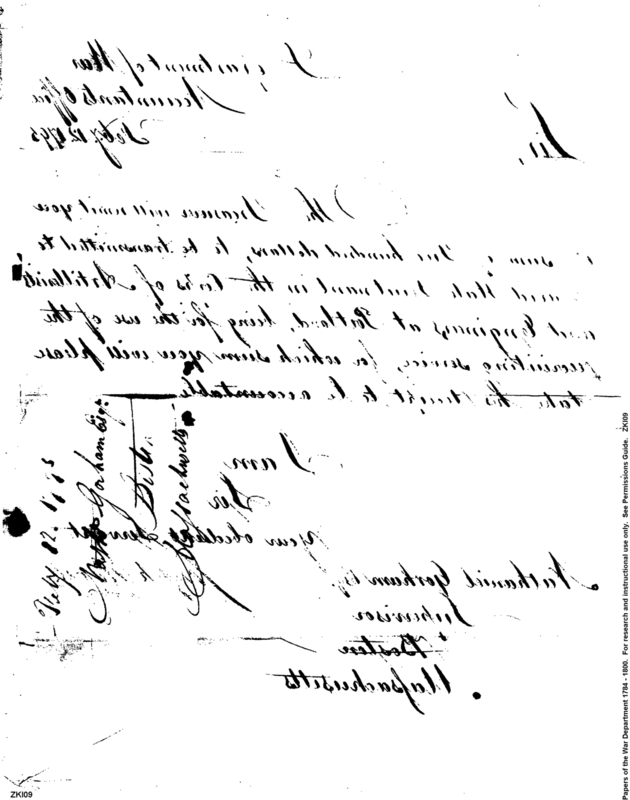 Department of War
Accountants Office
Feby. 12. 1795
Sir,
The Treasurer will remit you
sum of One hundred dollars, to be transmitted to
Lieutenant in the Corps of Artillerists
and Engineers at Portland, being for the use of the
recruiting service, for which sum you will please
take his receipt to be accountable
I am
Sir
Your obedient Servant
Nathaniel Gorham Esqr.
Supervisor
Boston
Massachusetts
Feby
Gorham Esqr.
Boston
Massachusetts
Papers of the War Department 1784 - 1800. For research and instructional use only. See Permissions Guide. ZKI09
ZKI09